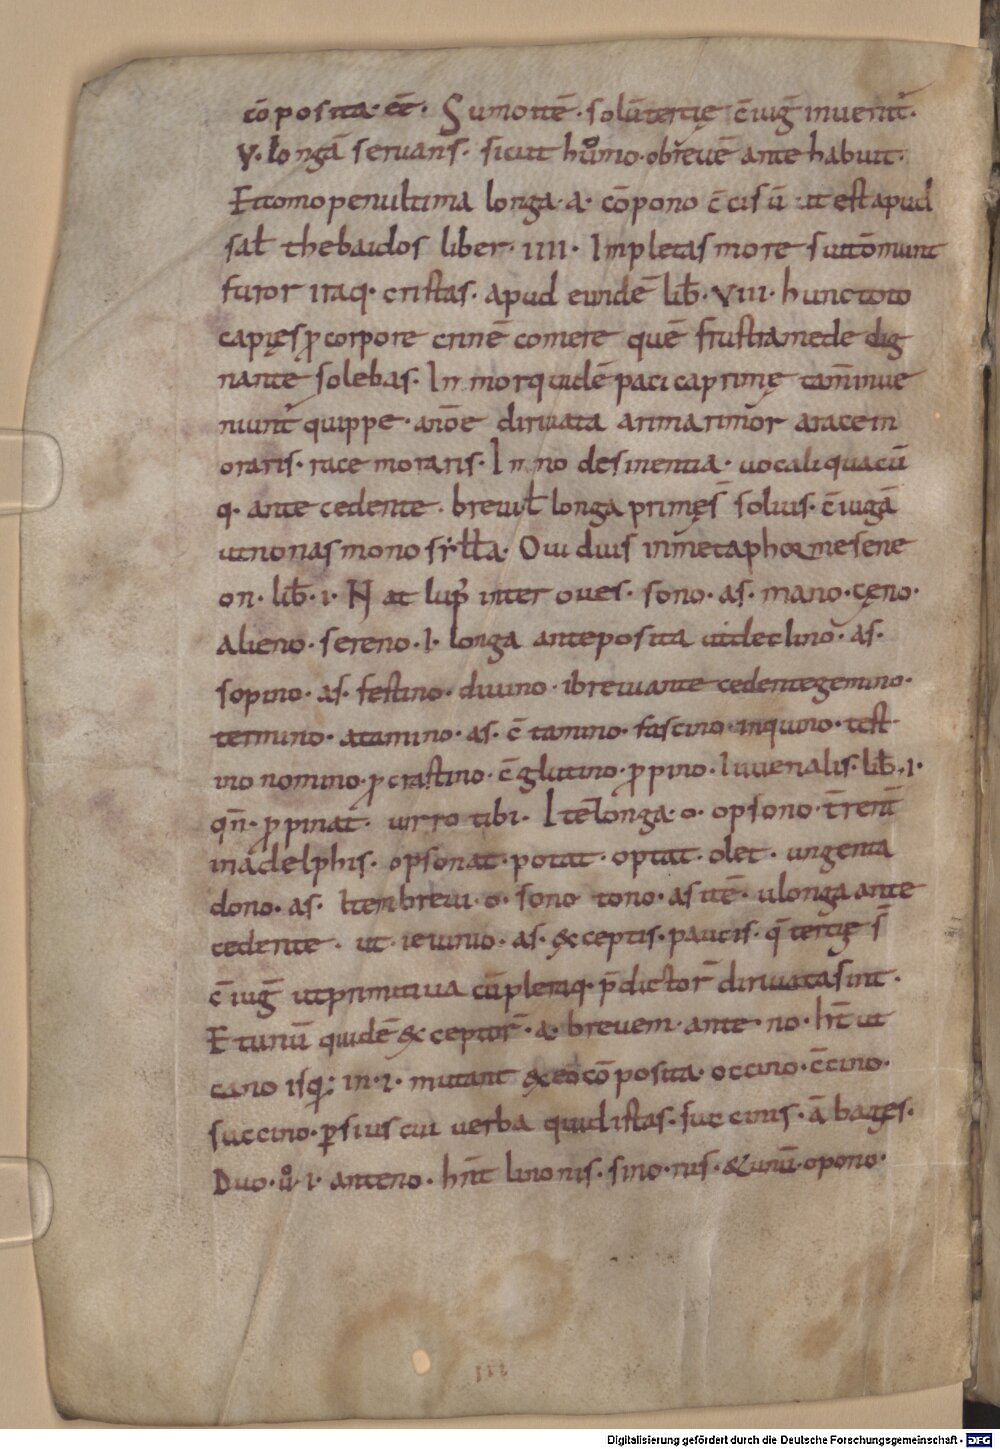 cōposita· eē· Sumo itē· solū tertię c̄iuḡ inuenit̄·
v· longā seruans· sicut humo· o breuē ante habuit·
Et omo penultima longa· a· cōpono c̄cisū ut est apud
sat̄ thebaidos liber· IIII· Impletas more suū comunt
furor iraq· cristas· apud eundē lib̄· VIII· hunc toto
capięs p corpore crinē comere quē frustra mede dig
nante solebas· In mor quidē pauca primę tam̄ inue
niunt̄ quippe· a noē diriuata arma rimor aracem
oraris· rite moraris· In no desinentia· uocali quacū
q· ante cedente· breui ł longa primę s̄ soluis· c̄iugā
ut no nas monosyłła· Ouidius in metaphormesene
on· lib̄· I· Nat lup̄ inter oues· sono· as· mano· cęno·
alieno· sereno· I· longa anteposita ut declino· as·
sopino· as· festino· diuino· i breui ante cedente gemino·
termino· atamino· as· c̄tamino· fascino· inquino· test
ino nomino· p crastino· c̄glutino· ppino· Iuuenalis· lib̄· I·
qn̄· ppinat· uirro tibi· Itē longa· o· opsono· t̄rent̄
in adelphis· opsonat· potat· optat· olet· ungenta
dono· as· Item breui· o· sono tono· as itē· u longa ante
cedente· ut ieiunio· as· &ceptis· paucis· q̄ tertię s̄
c̄iuḡ ut primitiua cū pleriq· p̄dictor̄ diriuata sint·
Et unū quidē &ceptor̄· a· breuem· ante· no· hn̄t ut
cano is q: in· i· mutant &eo cōposita· occino· c̄cino·
succino· psius cui uerba quid istas· succinis· ābages·
Duo· ů· i· ante no· hn̄t lino nis· sino· nis· & unū· opono·
III
Digitalisierung gefördert durch die Deutsche Forschungsgemeinschaft - DFG